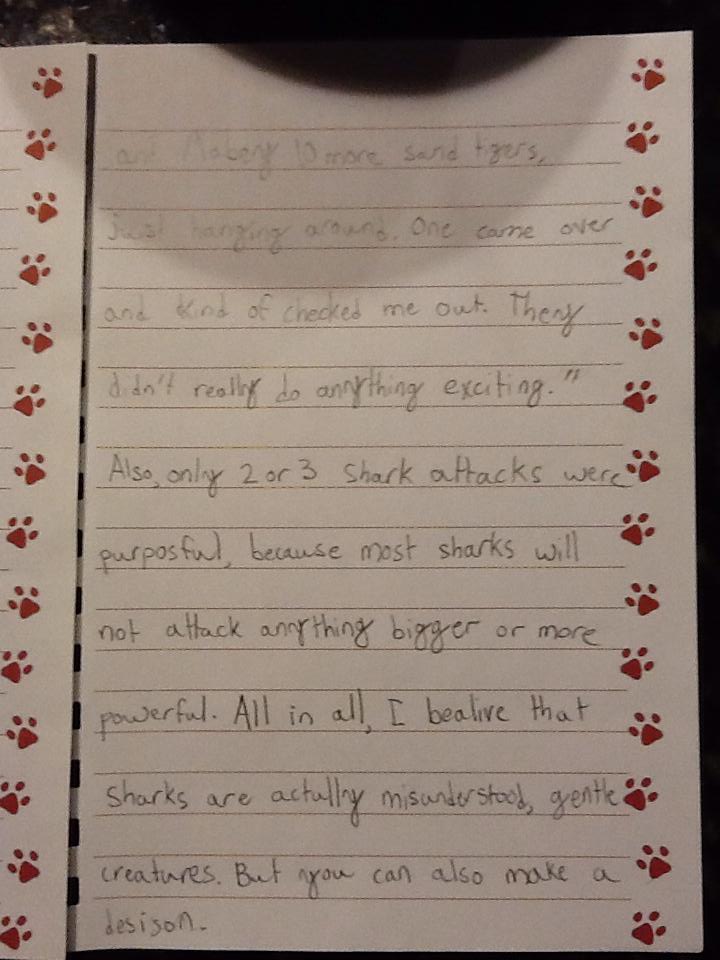 and Mabeny 10 more sand tigers,
just hanging around. One came over
and kind of checked me out. They
didn't really do anything exciting."
Also, only 2 or 3 shark attacks were
purposful, because most sharks will
not attack anything bigger or more
powerful. All in all, I bealive that
sharks are actully misunderstood, gentle
creatures. But you can also make a
desison.